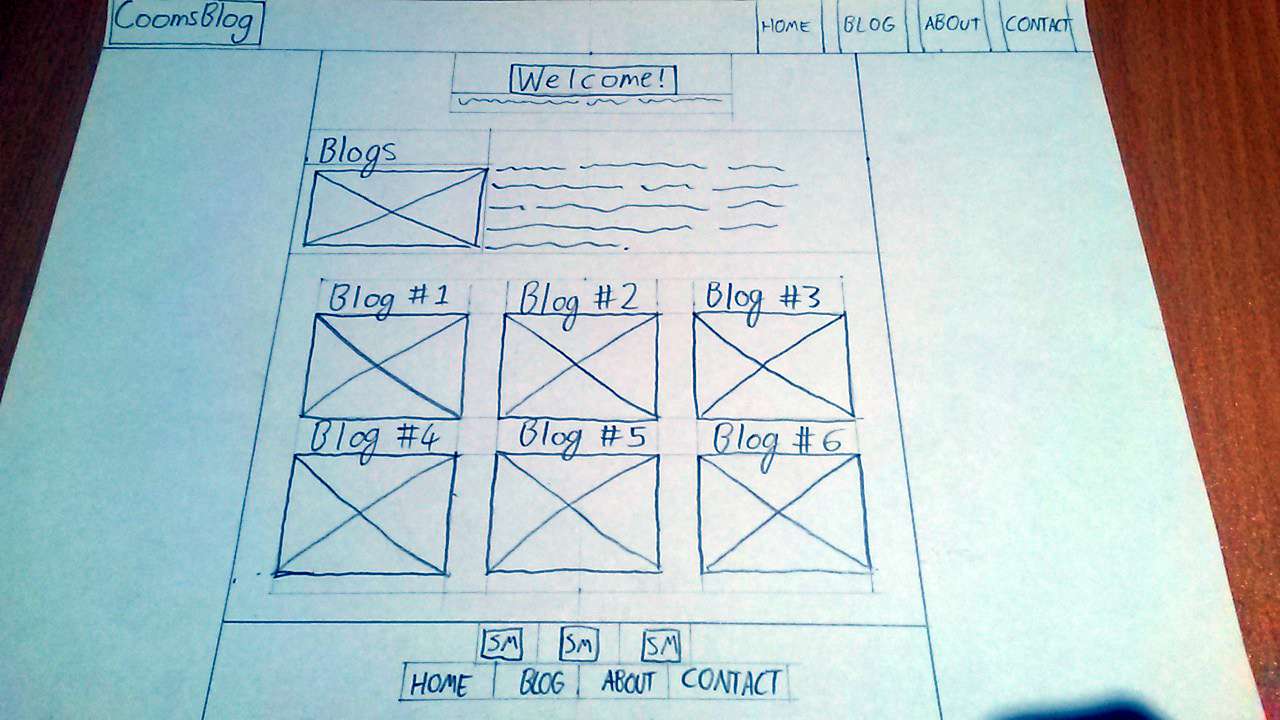 CoomsBlog HOME BLOG ABOUT CONTACT
Welcome!
Blogs
Blog #1 Blog #2 Blog #3
Blog #4 Blog #5 Blog #6
SM SM SM
HOME BLOG ABOUT CONTACT